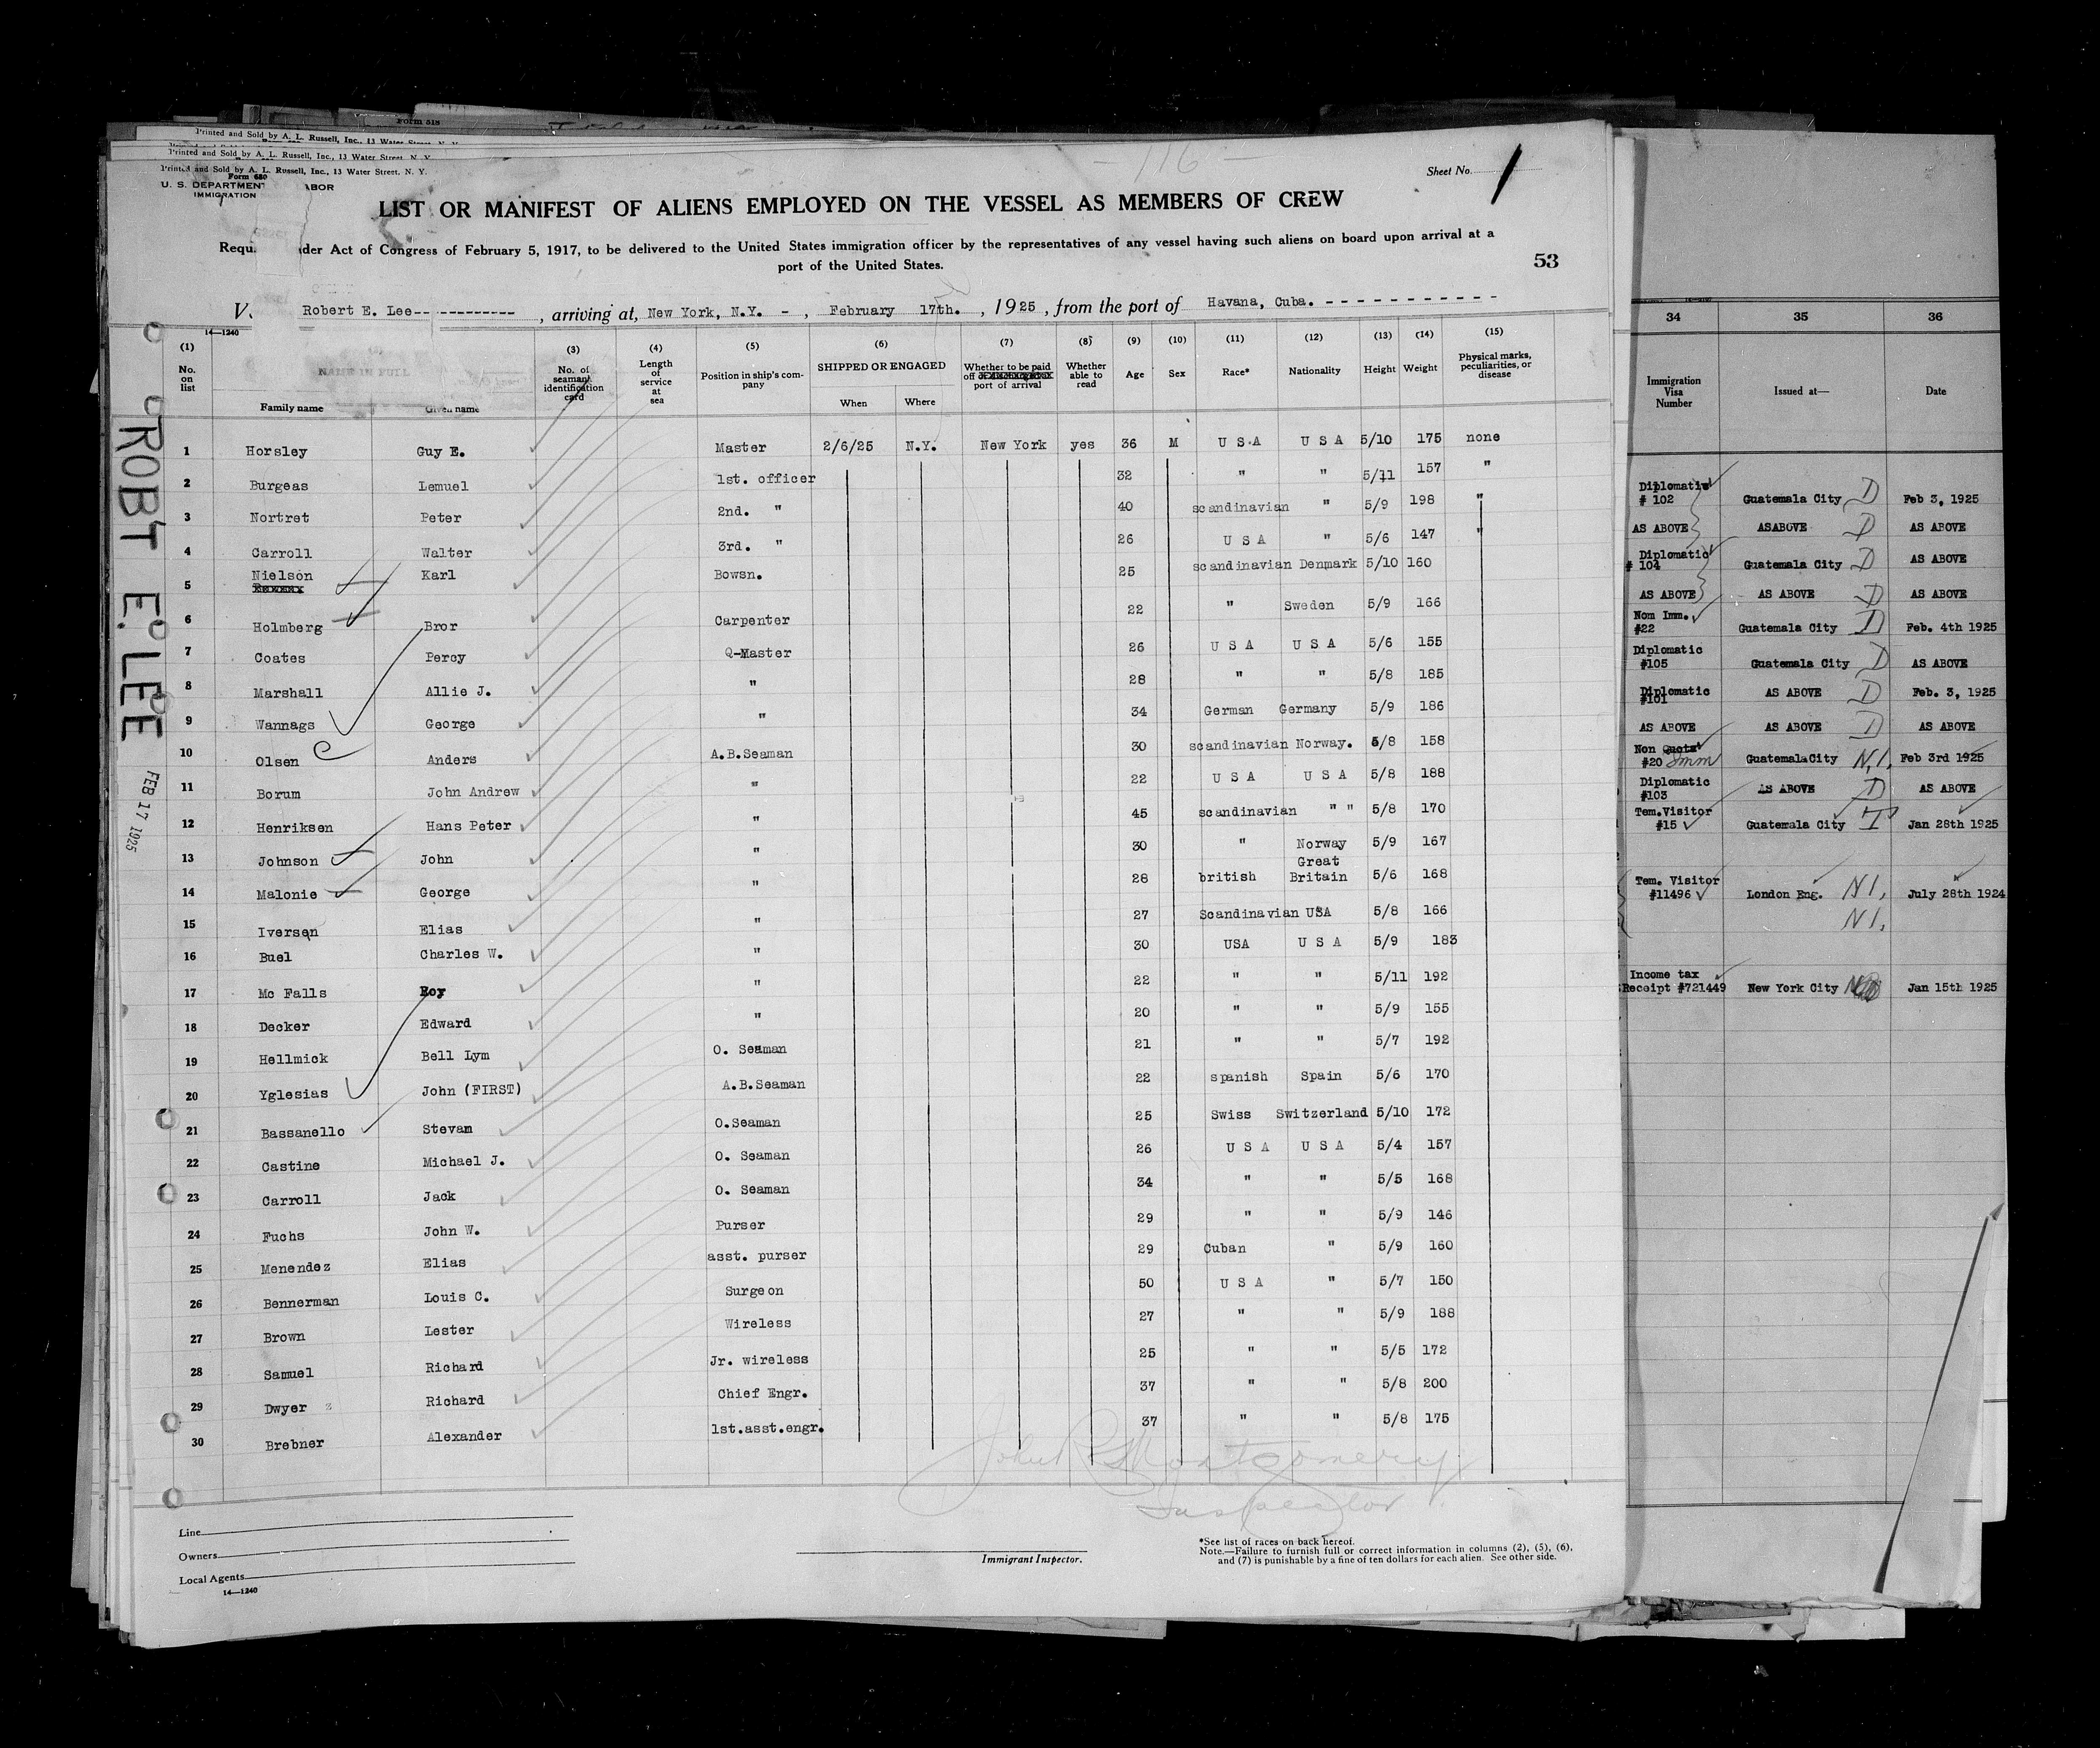 Form 618
Printed and Sold by A. L. Russell, Inc., 13 Water Street, N. Y.
Printed and Sold by A. L. Russell, Inc., 13 Water Street, N. Y.
Printed and Sold by A. L. Russell, Inc., 13 Water Street. N. Y.
Form 680
U. S. DEPARTMENT ABOR
IMMIGRATION
116
Sheet No. 1
LIST OR MANIFEST OF ALIENS EMPLOYED ON THE VESSEL AS MEMBERS OF CREW
Requ. der Act of Congress of February 5, 1917, to be delivered to the United States immigration officer by the representatives of any vessel having such aliens on board upon arrival at a
port of the United States.
53
V. Robert E. Lee-- ---------- , arriving at, New York, N.Y. - , February 17th. , 1925 , from the port of Havana, Cuba. - - - - - - - - - - - -
14—1240
(1) No. on list
NAME IN FULL Family name Given name
(3) No. of seaman's identification card
(4) Length of service at sea
(5) Position in ship's company
(6) SHIPPED OR ENGAGED When Where
(7) Whether to be paid off port of arrival
(8) Whether able to read
(9) Age
(10) Sex
(11) Race*
(12) Nationality
(13) Height
(14) Weight
(15) Physical marks, peculiarities, or disease
1 Horsley Guy E. Master 2/6/25 N.Y. New York yes 36 M U S A U S A 5/10 175 none
2 Burgeas Lemuel 1st. officer 32 " " 5/11 157 "
3 Nortret Peter 2nd. " 40 scandinavian " 5/9 198 "
4 Carroll Walter 3rd. " 26 U S A " 5/6 147 "
5 Nielson Karl Bowsn. 25 scandinavian Denmark 5/10 160
6 Holmberg Bror Carpenter 22 " Sweden 5/9 166
7 Coates Percy Q-Master 26 U S A U S A 5/6 155
8 Marshall Allie J. " 28 " " 5/8 185
9 Wannags George " 34 German Germany 5/9 186
10 Olsen Anders A.B.Seaman 30 scandinavian Norway. 5/8 158
11 Borum John Andrew " 22 U S A U S A 5/8 188
12 Henriksen Hans Peter " 45 scandinavian " " 5/8 170
13 Johnson John " 30 " Norway 5/9 167
14 Malonie George " 28 british Great Britain 5/6 168
15 Iversen Elias " 27 Scandinavian USA 5/8 166
16 Buel Charles W. " 30 USA U S A 5/9 183
17 Mc Falls Roy " 22 " " 5/11 192
18 Decker Edward " 20 " " 5/9 155
19 Hellmick Bell Lym O. Seaman 21 " " 5/7 192
20 Yglesias John (FIRST) A.B.Seaman 22 spanish Spain 5/6 170
21 Bassanello Stevan O.Seaman 25 Swiss Switzerland 5/10 172
22 Castine Michael J. O. Seaman 26 U S A U S A 5/4 157
23 Carroll Jack O. Seaman 34 " " 5/5 168
24 Fuchs John W. Purser 29 " " 5/9 146
25 Menendez Elias asst. purser 29 Cuban " 5/9 160
26 Bennerman Louis C. Surgeon 50 U S A " 5/7 150
27 Brown Lester Wireless 27 " " 5/9 188
28 Samuel Richard Jr. wireless 25 " " 5/5 172
29 Dwyer Richard Chief Engr. 37 " " 5/8 200
30 Brebner Alexander 1st.asst.engr. 37 " " 5/8 175
John R. Montgomery
Inspector
Line
Owners
Local Agents
14—1240
Immigrant Inspector.
*See list of races on back hereof.
Note.—Failure to furnish full or correct information in columns (2), (5), (6),
and (7) is punishable by a fine of ten dollars for each alien. See other side.
ROBT E. LEE
FEB 17 1925
34 35 36
Immigration Visa Number Issued at— Date
Diplomatic # 102 Guatemala City D Feb 3, 1925
AS ABOVE ASABOVE D AS ABOVE
Diplomatic # 104 Guatemala City D AS ABOVE
AS ABOVE AS ABOVE D AS ABOVE
Nom Imm. #22 Guatemala City D Feb. 4th 1925
Diplomatic #105 Guatemala City D AS ABOVE
Diplomatic #101 AS ABOVE D Feb. 3, 1925
AS ABOVE AS ABOVE D AS ABOVE
Non Quota #20 Imm GuatemalaCity N.I. Feb 3rd 1925
Diplomatic #103 AS ABOVE D AS ABOVE
Tem.Visitor #15 Guatemala City T Jan 28th 1925
Tem. Visitor #11496 London Eng. N I, July 28th 1924
N I,
Income tax Receipt #721449 New York City Jan 15th 1925